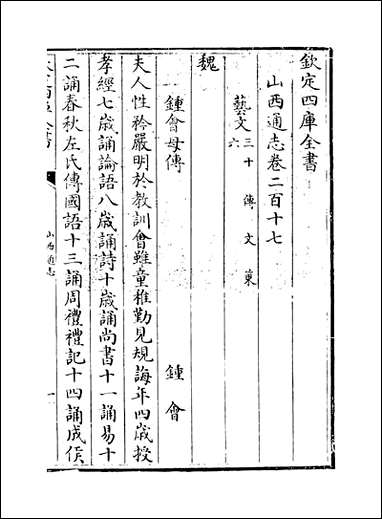 欽定四庫全書
山西通志卷二百十七
藝文三十六 傳 文 東
魏
鍾會母傳 鍾會
夫人性矜嚴明於教訓會雖童稚勤見規誨年四歲授
孝經七歲誦論語八歲誦詩十歲誦尚書十一誦易十
二誦春秋左氏傳國語十三誦周禮禮記十四誦成侯
山西通志
一